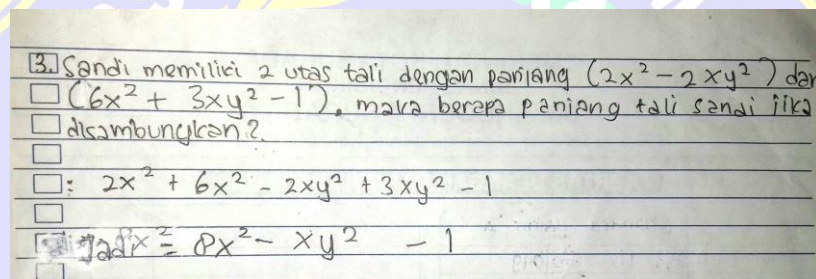 3. Sandi memiliki 2 utas tali dengan panjang (2x² - 2xy²) dan
(6x² + 3xy² - 1). maka berapa panjang tali sandi jika
disambungkan?
: 2x² + 6x² - 2xy² + 3xy² - 1
Jadi = 8x² - xy² - 1